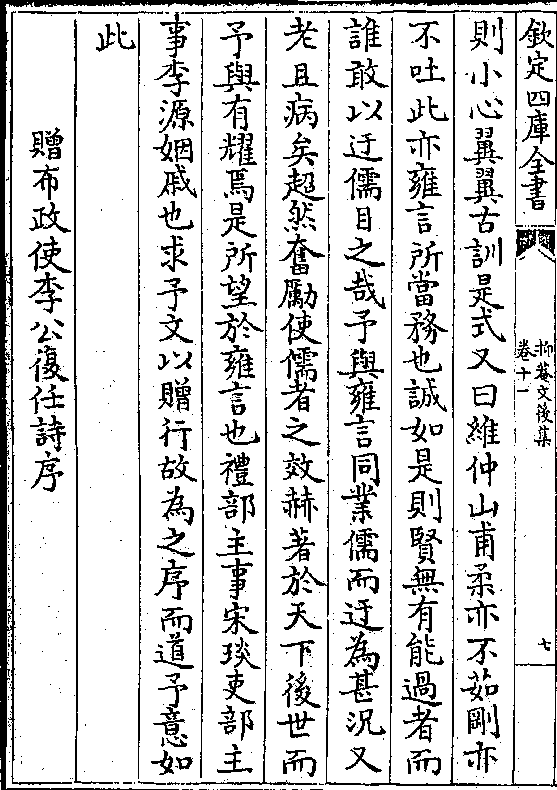 欽定四庫全書
抑菴文後集
卷十一
七
則小心翼翼古訓是式又曰維仲山甫柔亦不茹剛亦
不吐此亦雍言所當務也誠如是則賢無有能過者而
誰敢以迂儒目之哉予與雍言同業儒而迂為甚況又
老且病矣超然奮勵使儒者之效赫著於天下後世而
予與有耀焉是所望於雍言也禮部主事宋琰吏部主
事李源姻戚也求予文以贈行故為之序而道予意如
此
贈布政使李公復任詩序